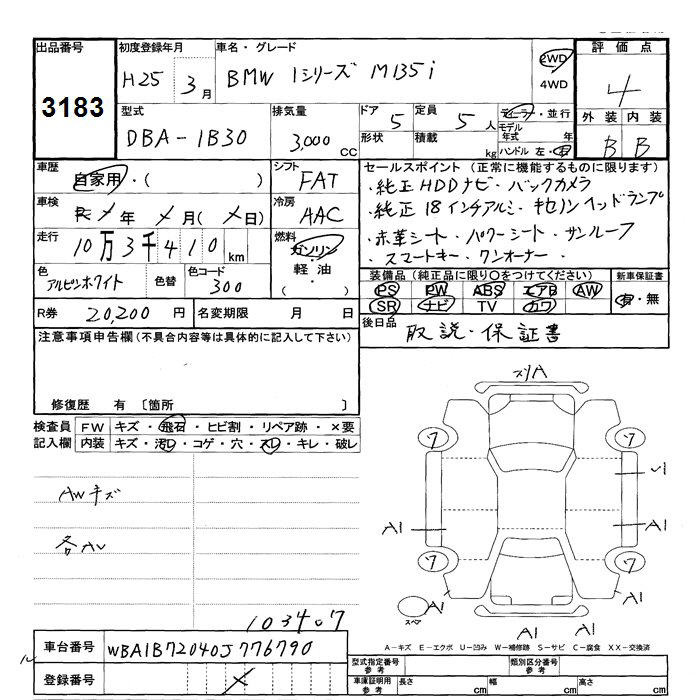 出品番号 初度登録年月 車名・グレード 評価点
3183 H25年 3月 BMW 1シリーズ M135i 2WD 4WD 4
型式 排気量 ドア 定員 ディーラー・並行 外装 内装
DBA-1B30 3,000cc 5 5人 モデル年式 年 B B
形状 積載 kg ハンドル 左・右
車歴 自家用・( ) シフト FAT
セールスポイント (正常に機能するものに限ります)
・純正HDDナビ・バックカメラ
・純正18インチアルミ・キセノンヘッドランプ
・赤革シート・パワーシート・サンルーフ
・スマートキー・ワンオーナー
車検 年 月(日) 冷房 AAC
走行 10万3千410km 燃料 ガソリン・軽油・( )
色 アルピンホワイト 色替 色コード 300
装備品 (純正品に限り○をつけてください) 新車保証書
PS PW ABS エアB AW 有・無
SR ナビ TV カワ
R券 20,200円 名変期限 月 日
後日品 取説・保証書
注意事項申告欄(不具合内容等は具体的に記入して下さい)
修復歴 有 〔箇所 〕
検査員記入欄 FW キズ・飛石・ヒビ割・リペア跡・×要
内装 キズ・汚レ・コゲ・穴・スレ・キレ・破レ
AWキズ
各AU
スリA
ワ ワ
A1 A1
ワ ワ
A1 A1
A1 A1
スペア
103407
A-キズ E-エクボ U-凹み W-補修跡 S-サビ C-腐食 XX-交換済
車台番号 WBA1B72040J776790
登録番号
型式指定番号 参考 類別区分番号 参考
車庫証明用 参考 長さ cm 幅 cm 高さ cm